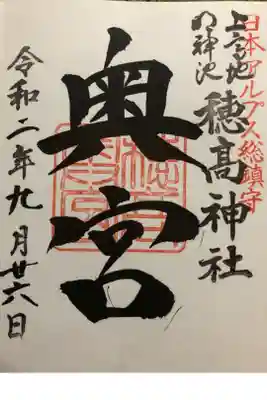 日本アルプス総鎮守
上高地
明神池
穂高神社
奥宮
令和二年九月廿六日